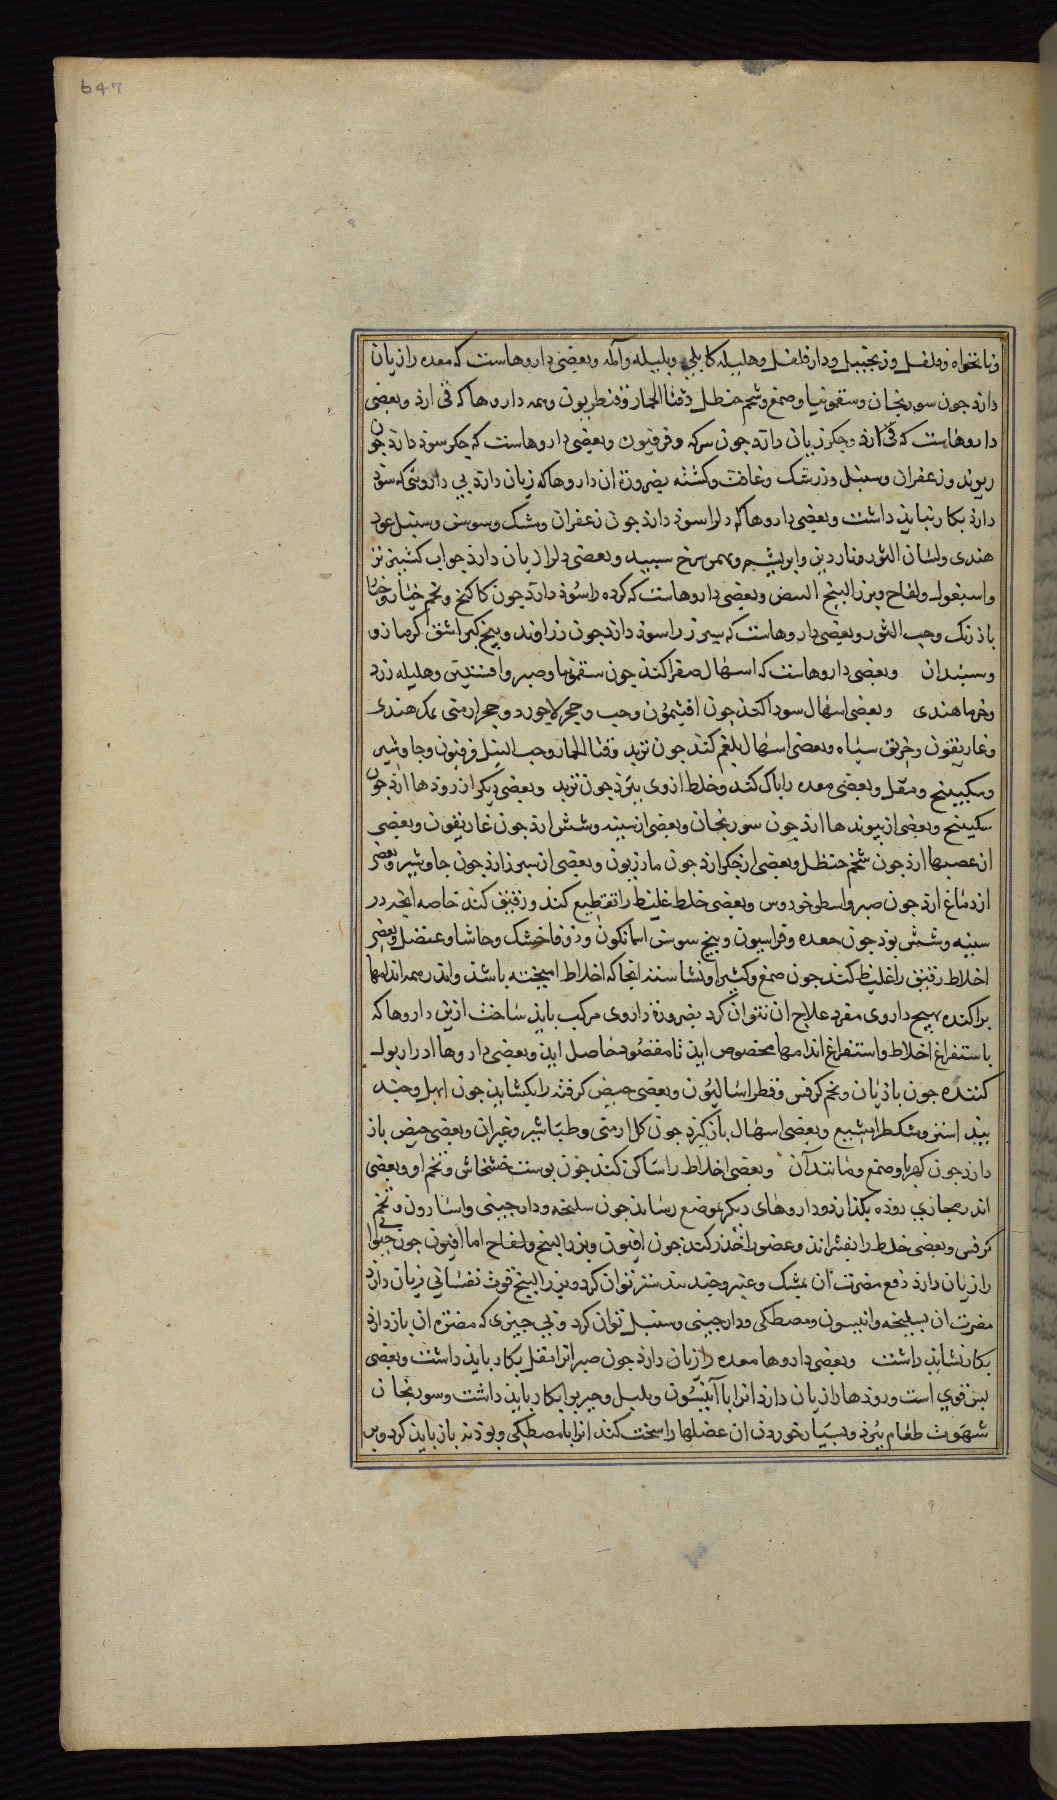 647
ونانخواه وفلفل وزنجبیل ودارفلفل وهلیله کابلی وبلیله وآمله وبعضی داروهاست که معده را زیان
دارذ جون سورنجان وسقمونیا وصمغ وشحم حنظل وقثا الحمار وقنطریون وهمه داروها که قی ارذ وبعضی
داروهاست که قی ارذ وجکر زیان دارذ جون سرکه وفرفیون وبعضی داروهاست که جکر سوذ دارذ جون
ریوند وزعفران وسنبل وزرشک وغافت وکشنه بضرورة ان داروها که زیان دارذ بی داروئی که سوذ
دارذ بکار نبایذ داشت وبعضی داروها که دلرا سوذ دارذ جون زعفران ومشک وسوسن وسنبل عود
هندی ولسان الثور وناردین وابریشم وبهمن سرخ سپید وبعضی دلرا زیان دارذ جو اب کشنیز تر
واسبغول ولفاح وبزر البنج البیض وبعضی داروهاست که کرده را سوذ دارذ جون کاکنج وتخم خیار وخیار
باذرنک وحب الثور وبعضی داروهاست که سپرز را سوذ دارذ جون زراوند وبیخ کبر اشق کزمازو
وسبندان وبعضی داروهاست که اسهال صفرا کنذ جون سقمونیا وصبر وافسنتین وهلیله زرد
وخرما هندی وبعضی اسهال سودا کنذ جون افتیمون وحب وحجر لاجورد وحجر ارمنی نمک هندی
وغاریقون وخربق سیاه وبعضی اسهال بلغم کنذ جون تربد وقثا الحمار وحب النیل فرفیون وجاوشیر
وسکبینج ومقل وبعضی معده را پاک کنذ وخلط ازوی ببرذ جون تربد وبعضی دیکر از روذها ارذ جون
سکبینج وبعضی از پیوندها ارذ جون سورنجان وبعضی از سینه وشش ارذ جون غاریقون وبعضی
از عصبها ارذ جون شحم حنظل وبعضی از جکر ارذ جون مازریون وبعضی از سپرز ارذ جون جاوشیر وبعضی
از دماغ ارذ جون صبر واسطوخودوس وبعضی خلط غلیظ را تقطیع کند ورقیق کند خاصه انجه در
سینه وشش بوذ جون جعده وفراسیون وبیخ سوسن اسمانکون وزوفا خشک وحاشا وعنصل وبعضی
اخلاط رقیق را غلیظ کنذ جون صمغ وکثیرا ونشاسته انجا که اخلاط امیخته باشذ واندر همه اندامها
براکنده بهیج داروی مفرد علاج ان نتوان کرد بضرورة داروی مرکب بایذ ساخت ازین داروها که
باستفراغ اخلاط واستفراغ اندامها مخصوص ایذ تا مقصود حاصل ایذ وبعضی داروها ادرار بول
کننده جون بادیان وتخم کرفس وفطراسالیون وبعضی حیض کرفته را بکشایذ جون ابهل وجند
بیدستر ومشکطرامشیع وبعضی اسهال باز کیرذ جون کل ارمنی وطباشیر وغیران وبعضی حیض باز
دارذ جون کهربا وصمغ ومانند آن وبعضی اخلاط را ساکن کنذ جون بوست خشخاش وتخم او وبعضی
اندر مجاری روده بکذارذ وداروهای دیکر بموضع رساند جون سلیخه ودارجینی واسارون وتخم
کرفس وبعضی خلط را بفشراند وعضو را خذر کنذ جون افیون وبزر البنج ولفاح اما افیون جون
را زیان دارذ دفع مضرت ان بمشک وعنبر وجند بیدستر توان کرد وبزر البنج قوت نفسانی زیان دارذ
مضرت ان بسلیخه وانیسون ومصطکی ودارجینی وسنبل توان کرد وبی جیزی که مضرة ان باز دارذ
بکار نشایذ داشت وبعضی داروها معده را زیان دارذ جون صبر انرا بمقل بکار بایذ داشت وبعضی
بس قوی است وروذها را زیان دارذ انرا با انیسون وبکار بایذ داشت وسورنجان
شهوت طعام ببرذ وبسیار خوردن ان عضلها را سخت کند انرا با مصطکی وبوذنه باز بایذ کرد وبس